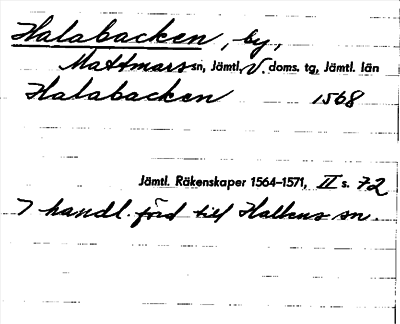 Halabacken, by,
Mattmars sn, Jämtl. V. doms. tg, Jämtl. län
Halabacken 1568
Jämtl. Räkenskaper 1564–1571, II s. 72
I handl. förd till Hallens sn.